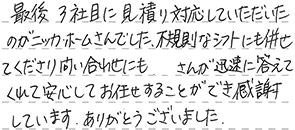 最後 3社目に見積り対応していただいた
のがニッカホームさんでした、不規則なシフトにも併せ
てくださり問い合わせにも　　さんが迅速に答えて
くれて安心してお任せすることができ感謝
しています。ありがとうございました。